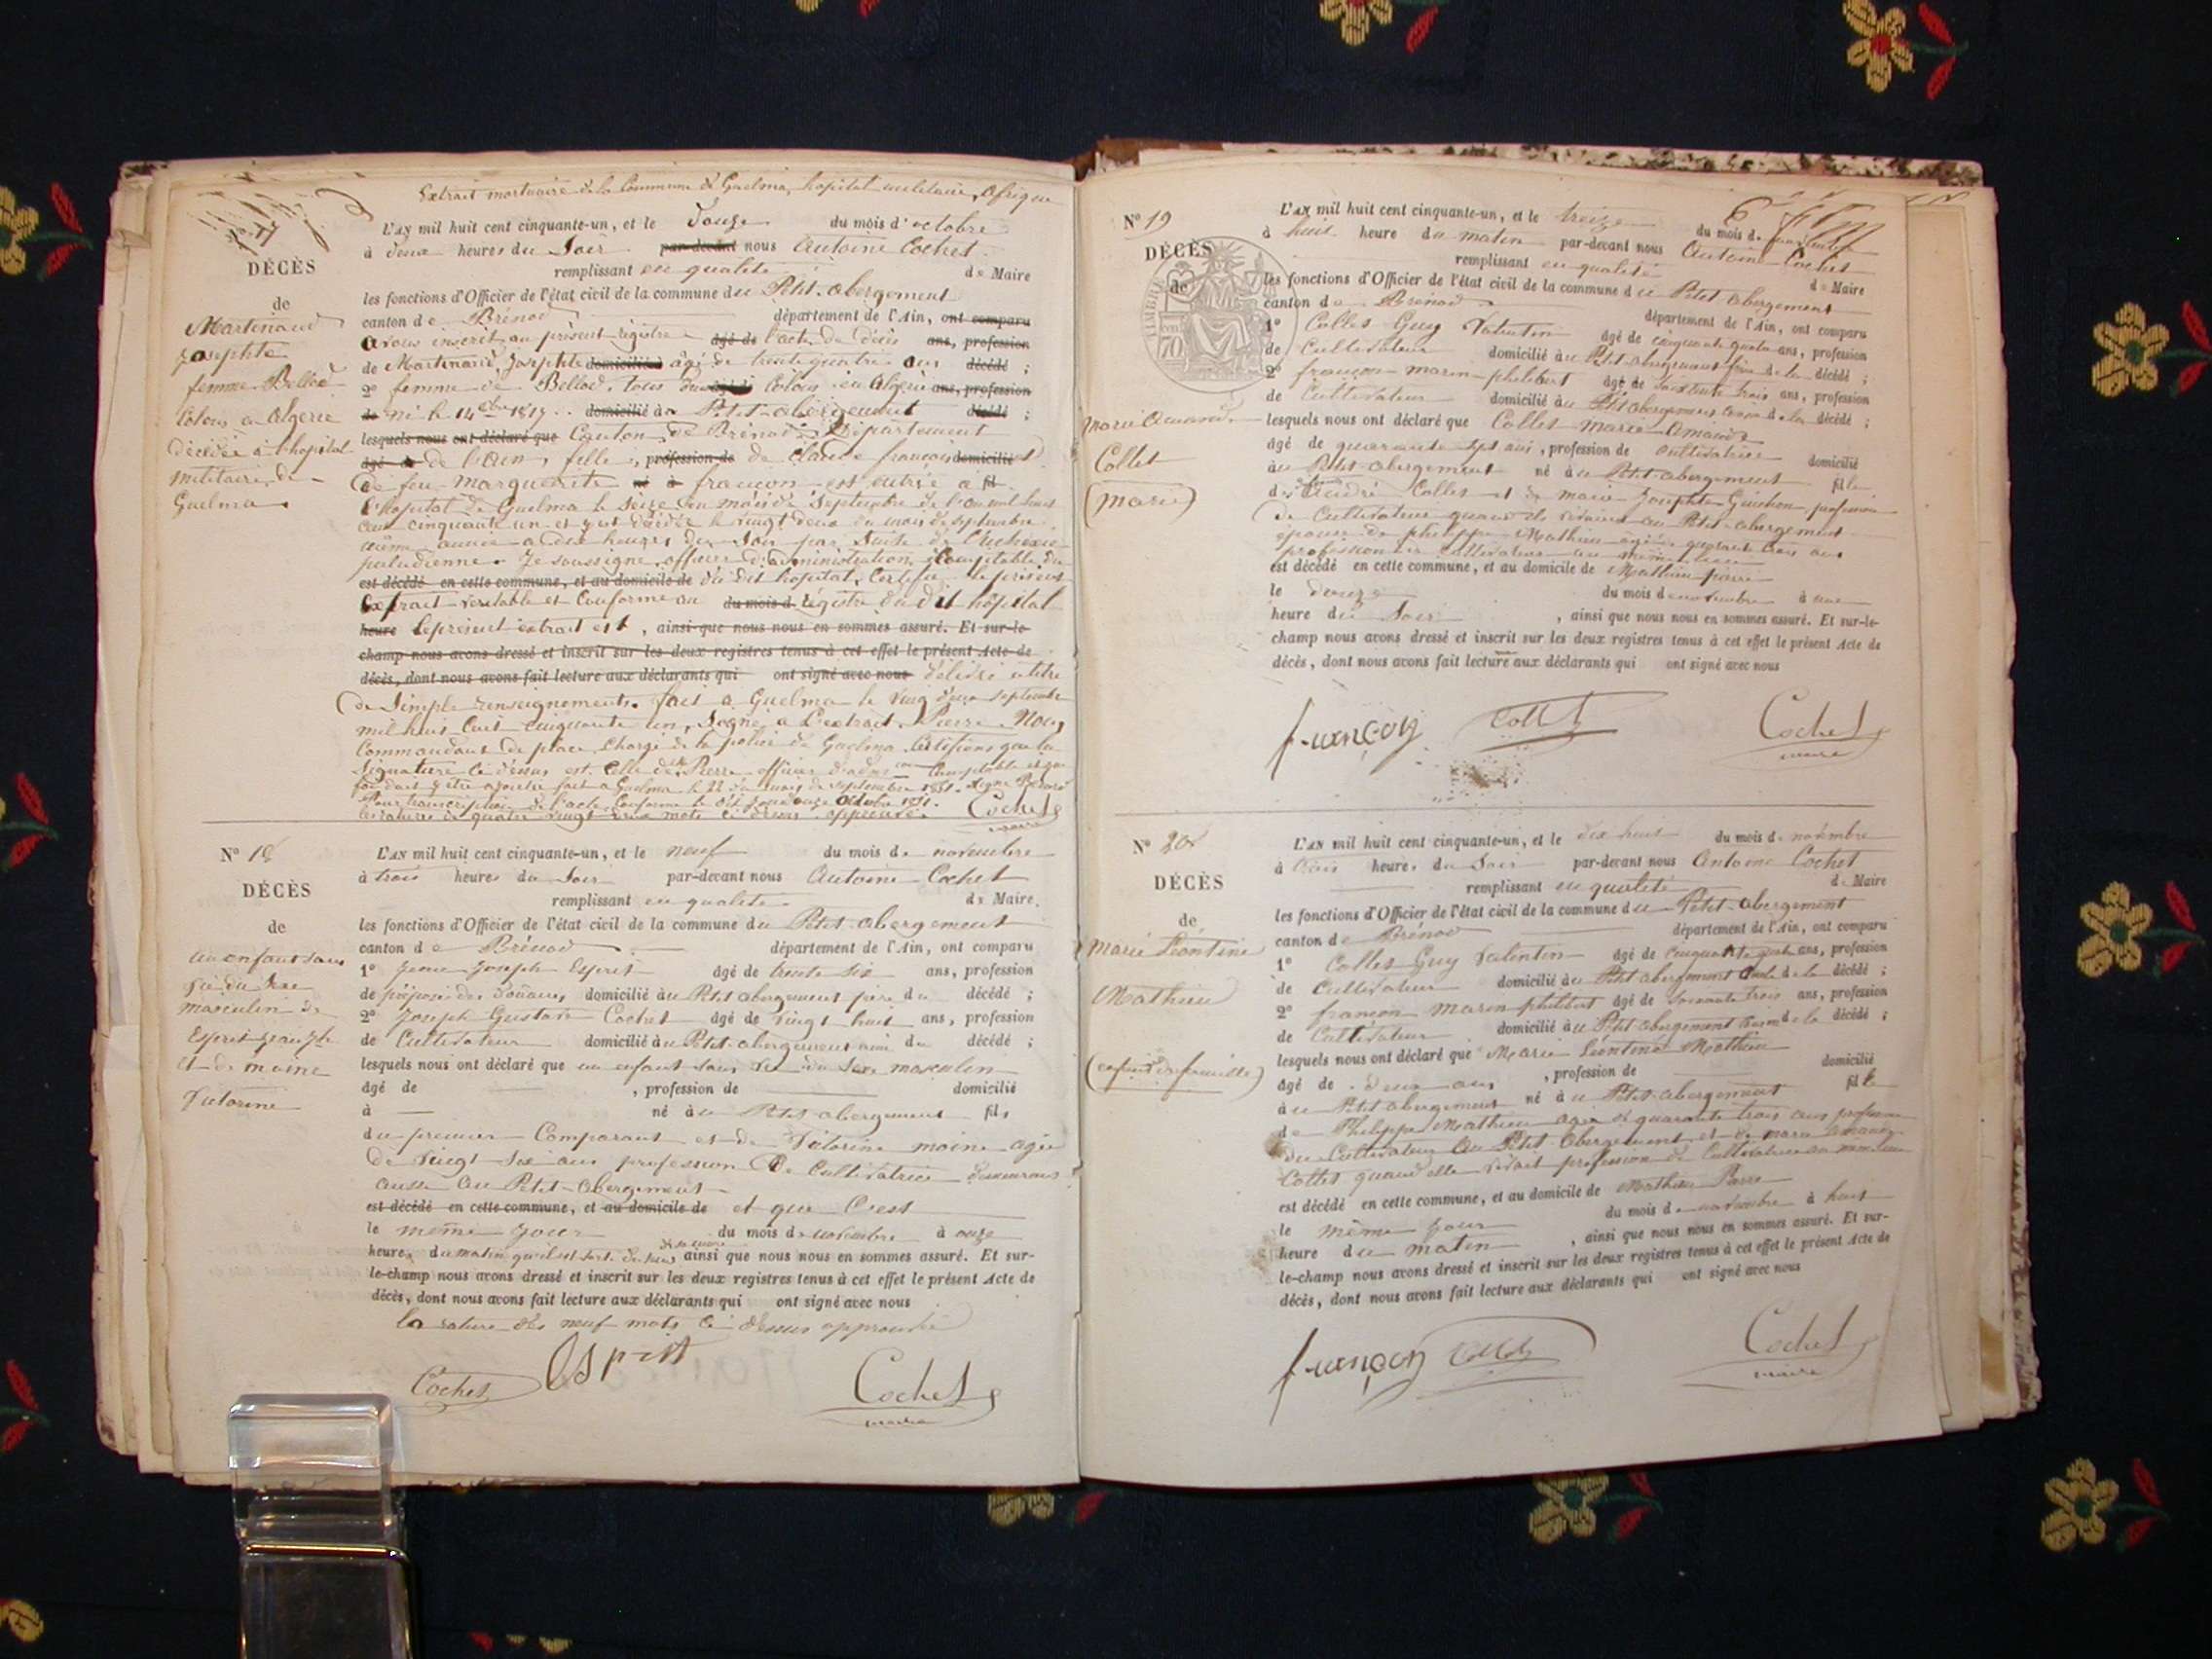 Extrait mortuaire de la Commune de Guelma, hopital militaire, Afrique
L'AN mil huit cent cinquante-un, et le Douze du mois d'octobre
à deux heures du Soir par-devant nous Antoine Cochet
DÉCÈS
remplissant en qualité de Maire
de
les fonctions d'Officier de l'état civil de la commune du Petit-abergement
Martinand
canton de Brénod département de l'Ain, ont comparu
Josephte
avons inscrit au présent registre agé de l'acte de décès ans, profession
de Martinand, Josephte domicilié à âgé de trente quatre ans décédé ;
femme Bellod
2° femme de Bellod, tous Colons en Algérie ans, profession
Colons en Algerie
de né le 14 1817 domicilié à Petit-abergement décédé ;
décédée à l'hopital
lesquels nous ont déclaré que Canton de Brénod Département
militaire de
agé de de l'Ain, fille, profession de de Claude françois domicilié et
Guelma
de feu Marguerite né à françon est entrée a fil
l'hopital de Guelma le seize du mois de Septembre de l'an mil huit
cent cinquante un et y est décédée le vingt deux du mois de septembre
même année à dix heures du Soir par Suite de
paludienne. Je soussigné officier d'administration, Comptable du
est décédé en cette commune, et au domicile de du dit hopital, Certifie le présent
Extrait véritable et Conforme au du mois d registre du dit hôpital
heure le present extrait est, ainsi que nous nous en sommes assuré. Et sur-le
champ nous avons dressé et inscrit sur les deux registres tenus à cet effet le présent Acte de
décès, dont nous avons fait lecture aux déclarants qui ont signé avec nous délivré à titre
de Simple renseignement. fait à Guelma le vingt deux septembre
mil huit cent cinquante un, Signé à l'extrait Pierre Nous
Commandant de place Chargé de la police de Guelma Certifions que la
Signature ci dessus est celle de Pierre officier Comptable et que
foi doit y être ajoutée fait à Guelma le 22 du mois de septembre 1851. Signé
Pour transcription de l'acte Conforme le dit jour douze Octobre 1851.
les ratures de quatre vingt deux mots ci dessus approuvé. Cochet
maire
N° 18
L'AN mil huit cent cinquante-un, et le neuf du mois de novembre
à trois heures du Soir par-devant nous Antoine Cochet
DÉCÈS
remplissant en qualité de Maire
de
les fonctions d'Officier de l'état civil de la commune du Petit-abergement
canton de Brénod département de l'Ain, ont comparu
un enfant sans
1° Jean Joseph Esprit agé de trente six ans, profession
vie du Sexe
de préposé des Douanes, domicilié au Petit abergement père du décédé ;
masculin de
2° Joseph Gustave Cochet agé de vingt huit ans, profession
Esprit Jean Jph
de Cultivateur domicilié au Petit-abergement ami du décédé ;
et de moine
lesquels nous ont déclaré que un enfant sans vie du Sexe masculin
Victorine
agé de , profession de domicilié
à né au Petit abergement fils
du premier Comparant et de Victorine moine agée
de vingt six ans profession de Cultivatrice demeurant
aussi au Petit-abergement
est décédé en cette commune, et au domicile de et que C'est
le même jour du mois de novembre à onze
de sa mère
heures du matin qu'il est sorti du sein, ainsi que nous nous en sommes assuré. Et sur-
le-champ nous avons dressé et inscrit sur les deux registres tenus à cet effet le présent Acte de
décès, dont nous avons fait lecture aux déclarants qui ont signé avec nous
la rature des neuf mots ci dessus approuvée
Cochet Esprit Cochet
maire
N° 19
L'AN mil huit cent cinquante-un, et le treize du mois de novembre
à huit heure du matin par-devant nous Antoine Cochet
DÉCÈS
remplissant en qualité de Maire
de
les fonctions d'Officier de l'état civil de la commune du Petit abergement
TIMBRE
70
canton de Brénod département de l'Ain, ont comparu
1° Collet Guy Valentin agé de cinquante quatre ans, profession
de Cultivateur domicilié au Petit abergement frère de la décédé ;
2° françon marin philibert agé de soixante trois ans, profession
de Cultivateur domicilié au Petit abergement cousin de la décédé ;
Marie Amand
lesquels nous ont déclaré que Collet Marie Amande
Collet
agé de quarante sept ans, profession de cultivatrice domicilié
au Petit-abergement né au Petit-abergement fille
(marie)
de André Collet et de marie Josephte Guichon profession
de Cultivateurs quand ils vivaient au Petit-abergement
épouse de philippe Mathieu agé de quarante trois ans
profession de cultivateur au même lieu
est décédé en cette commune, et au domicile de Mathieu pierre
le douze du mois de novembre à une
heure du Soir, ainsi que nous nous en sommes assuré. Et sur-le-
champ nous avons dressé et inscrit sur les deux registres tenus à cet effet le présent Acte de
décès, dont nous avons fait lecture aux déclarants qui ont signé avec nous
françon Collet Cochet
maire
N° 20
L'AN mil huit cent cinquante-un, et le dix huit du mois de novembre
à trois heures du Soir par-devant nous Antoine Cochet
DÉCÈS
remplissant en qualité de Maire
de
les fonctions d'Officier de l'état civil de la commune du Petit-abergement
Marie Léontine
canton de Brénod département de l'Ain, ont comparu
1° Collet Guy Valentin agé de cinquante quatre ans, profession
Mathieu
de Cultivateur domicilié au Petit abergement oncle de la décédé ;
2° françon marin philibert agé de soixante trois ans, profession
de Cultivateur domicilié au Petit abergement cousin de la décédé ;
(enfant de famille)
lesquels nous ont déclaré que Marie Léontine Mathieu
agé de deux ans, profession de domicilié
au Petit abergement né au Petit-abergement fille
de Philippe Mathieu agé de quarante trois ans profession
de Cultivateur au Petit abergement et de marie amande
Collet quand elle vivait profession de Cultivatrice au même lieu
est décédé en cette commune, et au domicile de Mathieu Pierre
le même jour du mois de novembre à huit
heure du matin, ainsi que nous nous en sommes assuré. Et sur-
le-champ nous avons dressé et inscrit sur les deux registres tenus à cet effet le présent Acte de
décès, dont nous avons fait lecture aux déclarants qui ont signé avec nous
françon Collet Cochet
maire